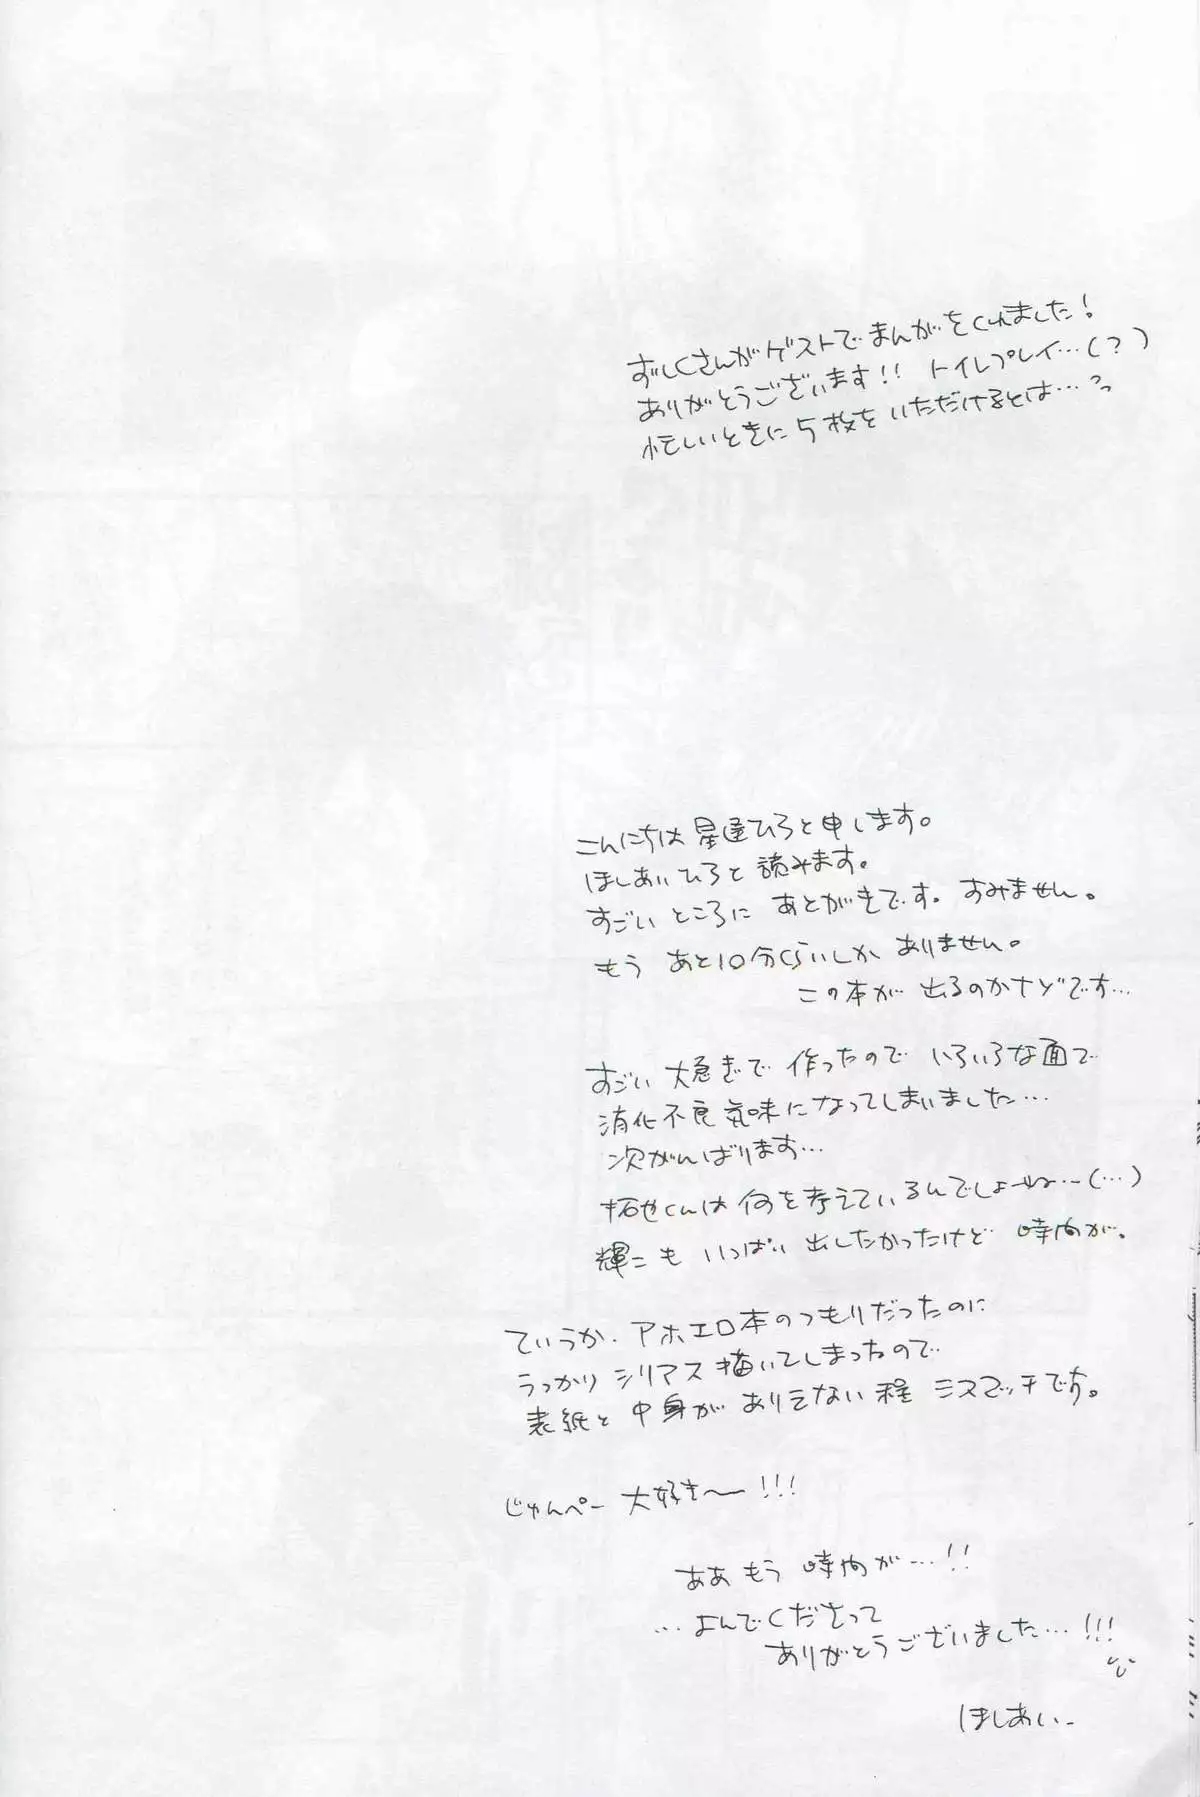 ずしくさんがゲストでまんがをくれました!
ありがとうございます!! トイレプレイ…(?)
忙しいときに5枚をいただけるとは…
こんにちは 星逢ひろと申します。
ほしあいひろと読みます。
すごいところに あとがきです。すみません。
もう あと10分くらいしか ありません。
この本が 出るのかナゾです…
すごい 大急ぎで 作ったので いろいろな面で
消化不良気味になってしまいました…
次がんばります…
拓也くんは 何を考えているんでしょーね…(…)
輝二も いっぱい 出したかったけど 時間が。
ていうか、アホエロ本のつもりだったのに
うっかり シリアス 描いてしまったので
表紙と 中身が ありえない程 ミスマッチです。
じゅんぺー 大好き〜!!!
ああ もう 時間が…!!
…よんでくださって
ありがとうございました…!!!
ほしあい